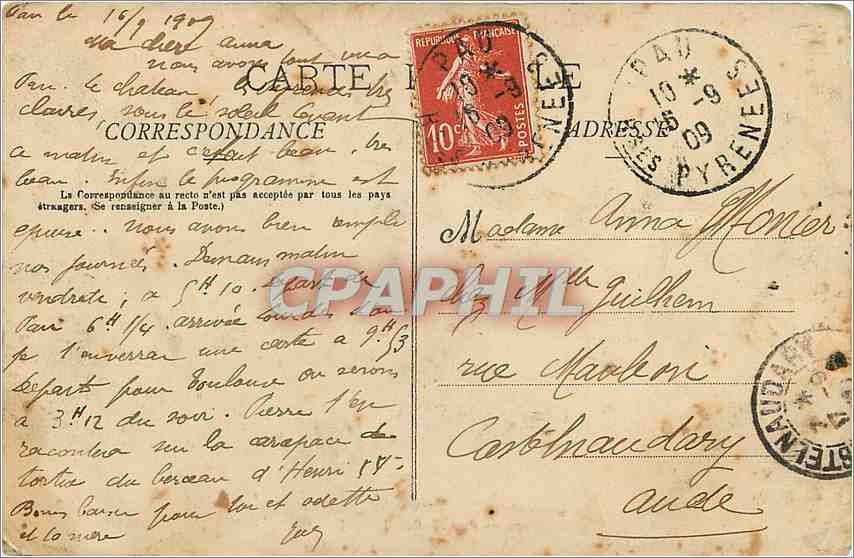 Pau le 16/9 1909
Ma chère Anna
nous avons tout vu a
Pau. le chateau, les Pyrénées très
CARTE POSTALE
claires, sous le soleil levant
CORRESPONDANCE
ce matin et c'était beau, très
beau. Enfin le programme est
La Correspondance au recto n'est pas acceptée par tous les pays
étrangers. (Se renseigner à la Poste.)
épuisé.. nous avons bien rempli
nos journées. Demain matin
vendredi, à 5H 10. départ de
Pau 6H 1/4. arrivée Lourdes d'où
je t'enverrai une carte à 9H 53
Départ pour Toulouse où serons
à 3H12 du soir. Pierre t'en
racontera sur la carapace de
tortue du berceau d'Henri IV
Bons baisers pour toi et Odette
et ta mère
REPUBLIQUE FRANÇAISE
10c
POSTES
PAU
10 *
16 -9
09
PYRENEES
ADRESSE
PAU
10 *
16 -9
09
BSES PYRENEES
Madame Anna Monier
chez Mlle Guilhem
rue Mauléon
Castelnaudary
Aude
CASTELNAUDARY
CPAPHIL